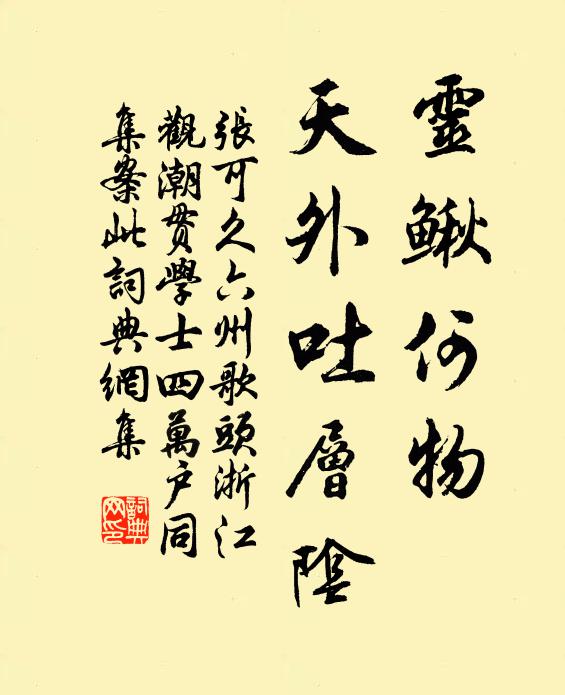 靈鳅何物
天外吐層陰
張可久六州歌頭浙江
觀潮貫學士四萬户同
集案此詞典網集
詞典
网印